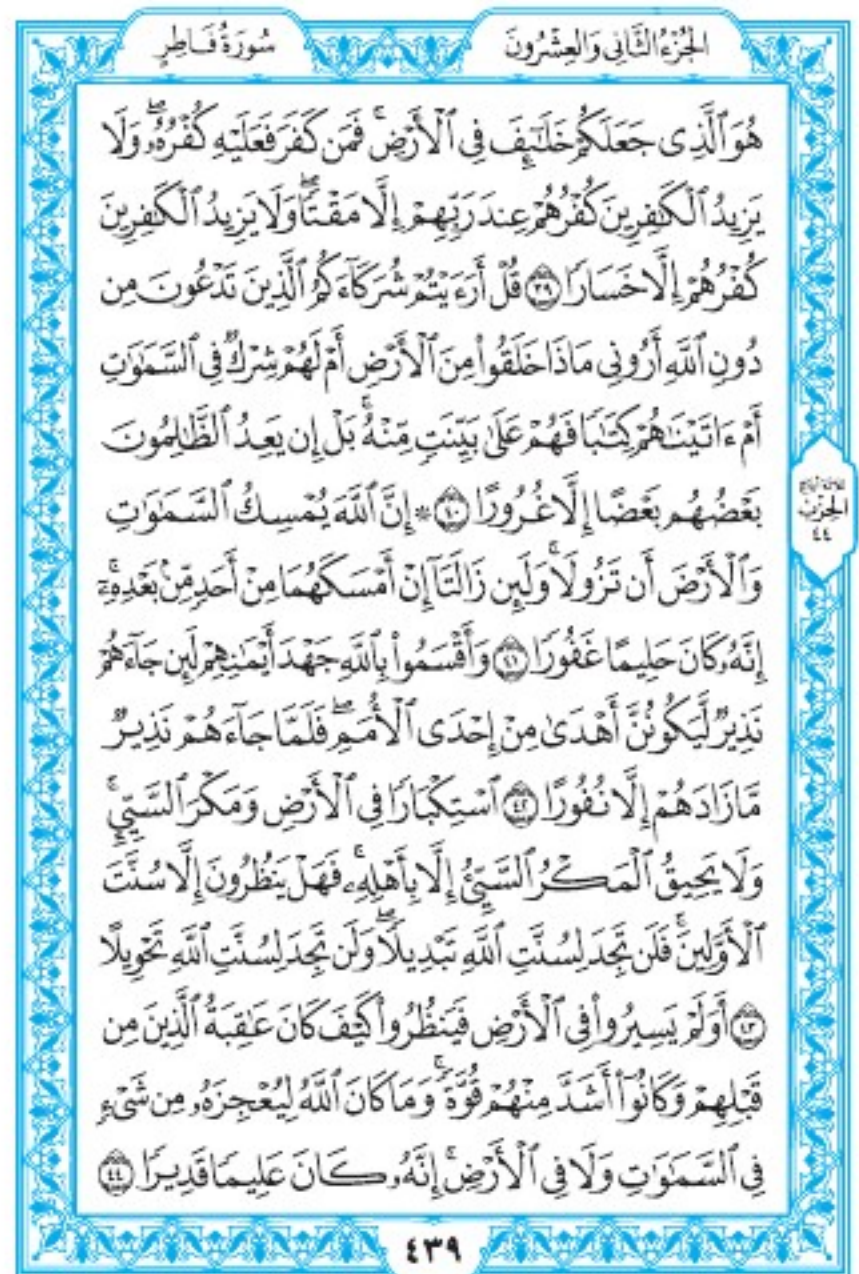 الجُزْءُ الثَّانِي وَالعِشْرُونَ
سُورَةُ فَاطِرٍ
هُوَ ٱلَّذِى جَعَلَكُمْ خَلَـٰٓئِفَ فِى ٱلْأَرْضِ ۚ فَمَن كَفَرَ فَعَلَيْهِ كُفْرُهُۥ ۖ وَلَا
يَزِيدُ ٱلْكَـٰفِرِينَ كُفْرُهُمْ عِندَ رَبِّهِمْ إِلَّا مَقْتًا ۖ وَلَا يَزِيدُ ٱلْكَـٰفِرِينَ
كُفْرُهُمْ إِلَّا خَسَارًا ۝٣٩ قُلْ أَرَءَيْتُمْ شُرَكَآءَكُمُ ٱلَّذِينَ تَدْعُونَ مِن
دُونِ ٱللَّهِ أَرُونِى مَاذَا خَلَقُوا۟ مِنَ ٱلْأَرْضِ أَمْ لَهُمْ شِرْكٌ فِى ٱلسَّمَـٰوَٰتِ
أَمْ ءَاتَيْنَـٰهُمْ كِتَـٰبًا فَهُمْ عَلَىٰ بَيِّنَتٍ مِّنْهُ ۚ بَلْ إِن يَعِدُ ٱلظَّـٰلِمُونَ
بَعْضُهُم بَعْضًا إِلَّا غُرُورًا ۝٤٠ ۞ إِنَّ ٱللَّهَ يُمْسِكُ ٱلسَّمَـٰوَٰتِ
وَٱلْأَرْضَ أَن تَزُولَا ۚ وَلَئِن زَالَتَآ إِنْ أَمْسَكَهُمَا مِنْ أَحَدٍ مِّنۢ بَعْدِهِۦٓ ۚ
إِنَّهُۥ كَانَ حَلِيمًا غَفُورًا ۝٤١ وَأَقْسَمُوا۟ بِٱللَّهِ جَهْدَ أَيْمَـٰنِهِمْ لَئِن جَآءَهُمْ
نَذِيرٌ لَّيَكُونُنَّ أَهْدَىٰ مِنْ إِحْدَى ٱلْأُمَمِ ۖ فَلَمَّا جَآءَهُمْ نَذِيرٌ
مَّا زَادَهُمْ إِلَّا نُفُورًا ۝٤٢ ٱسْتِكْبَارًا فِى ٱلْأَرْضِ وَمَكْرَ ٱلسَّيِّئِ ۚ
وَلَا يَحِيقُ ٱلْمَكْرُ ٱلسَّيِّئُ إِلَّا بِأَهْلِهِۦ ۚ فَهَلْ يَنظُرُونَ إِلَّا سُنَّتَ
ٱلْأَوَّلِينَ ۚ فَلَن تَجِدَ لِسُنَّتِ ٱللَّهِ تَبْدِيلًا ۖ وَلَن تَجِدَ لِسُنَّتِ ٱللَّهِ تَحْوِيلًا
۝٤٣ أَوَلَمْ يَسِيرُوا۟ فِى ٱلْأَرْضِ فَيَنظُرُوا۟ كَيْفَ كَانَ عَـٰقِبَةُ ٱلَّذِينَ مِن
قَبْلِهِمْ وَكَانُوٓا۟ أَشَدَّ مِنْهُمْ قُوَّةً ۚ وَمَا كَانَ ٱللَّهُ لِيُعْجِزَهُۥ مِن شَىْءٍ
فِى ٱلسَّمَـٰوَٰتِ وَلَا فِى ٱلْأَرْضِ ۚ إِنَّهُۥ كَانَ عَلِيمًا قَدِيرًا ۝٤٤
الحِزْب
٤٤
٤٣٩